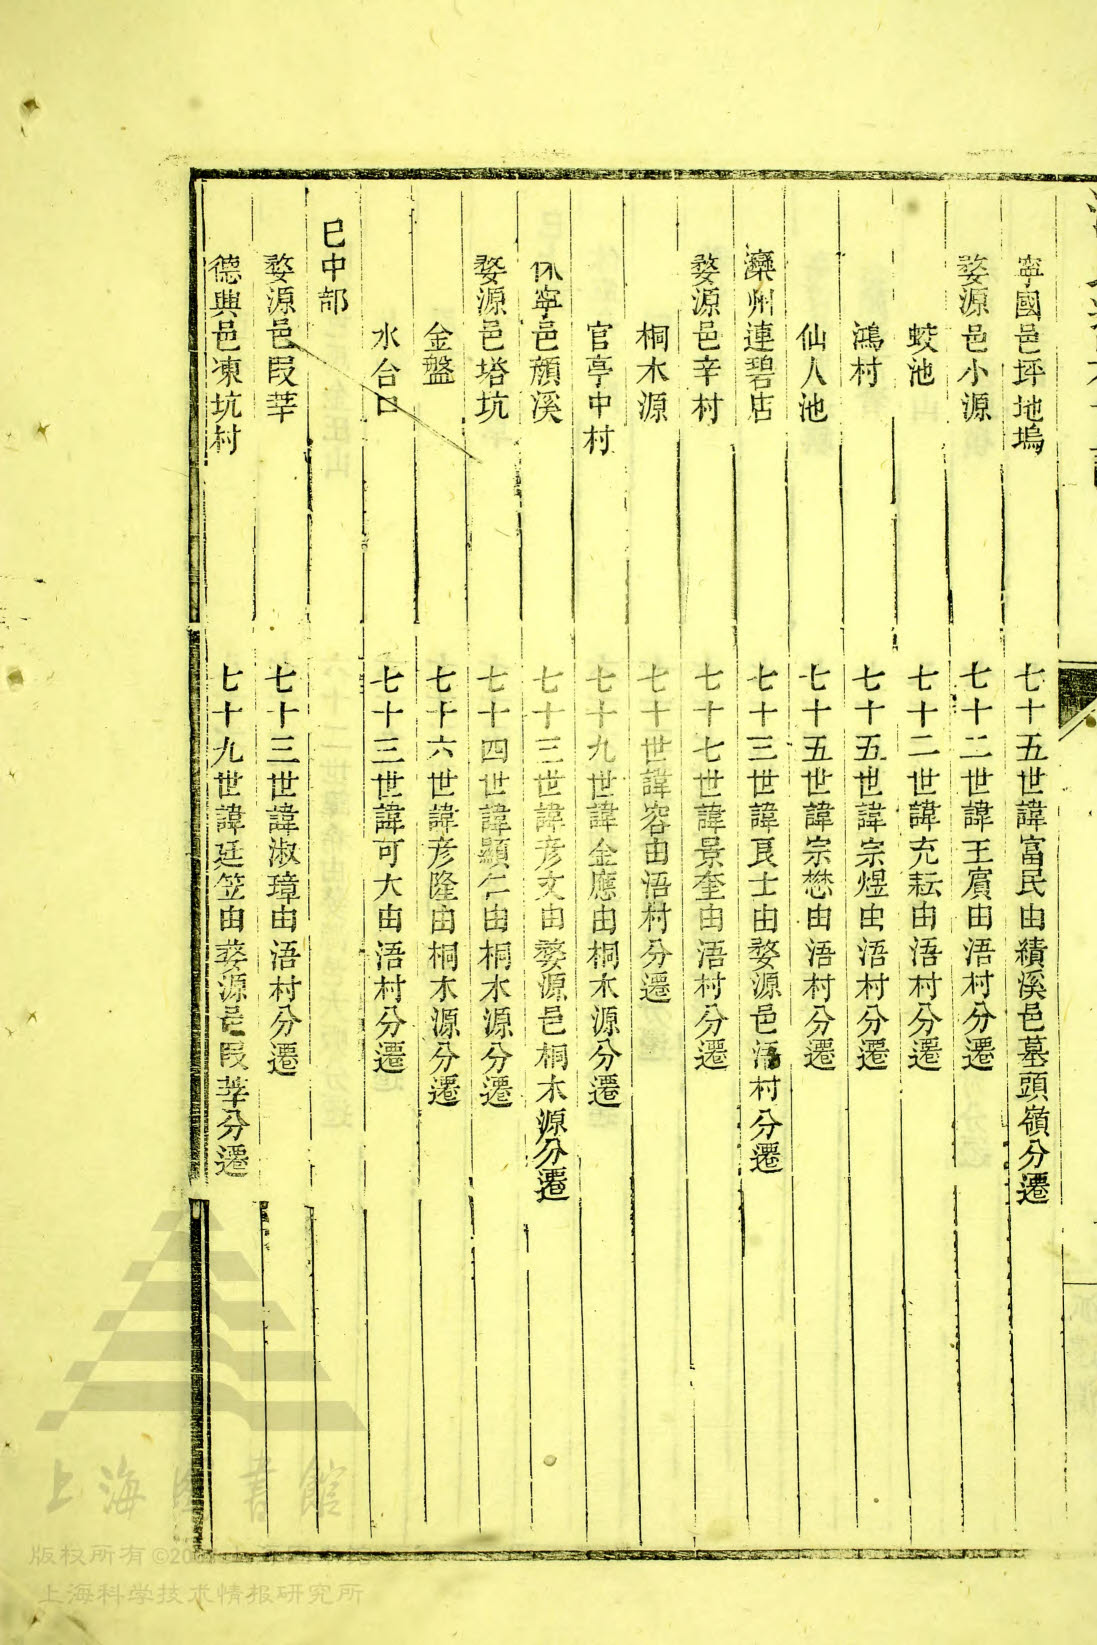 寧國邑坪地塢 七十五世諱富民由績溪邑墓頭嶺分遷
婺源邑小源 七十二世諱王賓由浯村分遷
蛟池 七十二世諱充耘由浯村分遷
鴻村 七十五世諱宗煜由浯村分遷
仙人池 七十五世諱宗懋由浯村分遷
灤州連碧店 七十三世諱良士由婺源邑浯村分遷
婺源邑辛村 七十七世諱景奎由浯村分遷
桐木源 七十世諱容由浯村分遷
官亭中村 七十九世諱金應由桐木源分遷
休寧邑顏溪 七十三世諱彦文由婺源邑桐木源分遷
婺源邑塔坑 七十四世諱顯仁由桐木源分遷
金盤 七十六世諱彦隆由桐木源分遷
水台口 七十三世諱可大由浯村分遷
巳中部
婺源邑叚莘 七十三世諱淑璋由浯村分遷
德興邑凍坑村 七十九世諱廷笠由婺源邑叚莘分遷
上海圖書館
版权所有©200
上海科学技术情报研究所